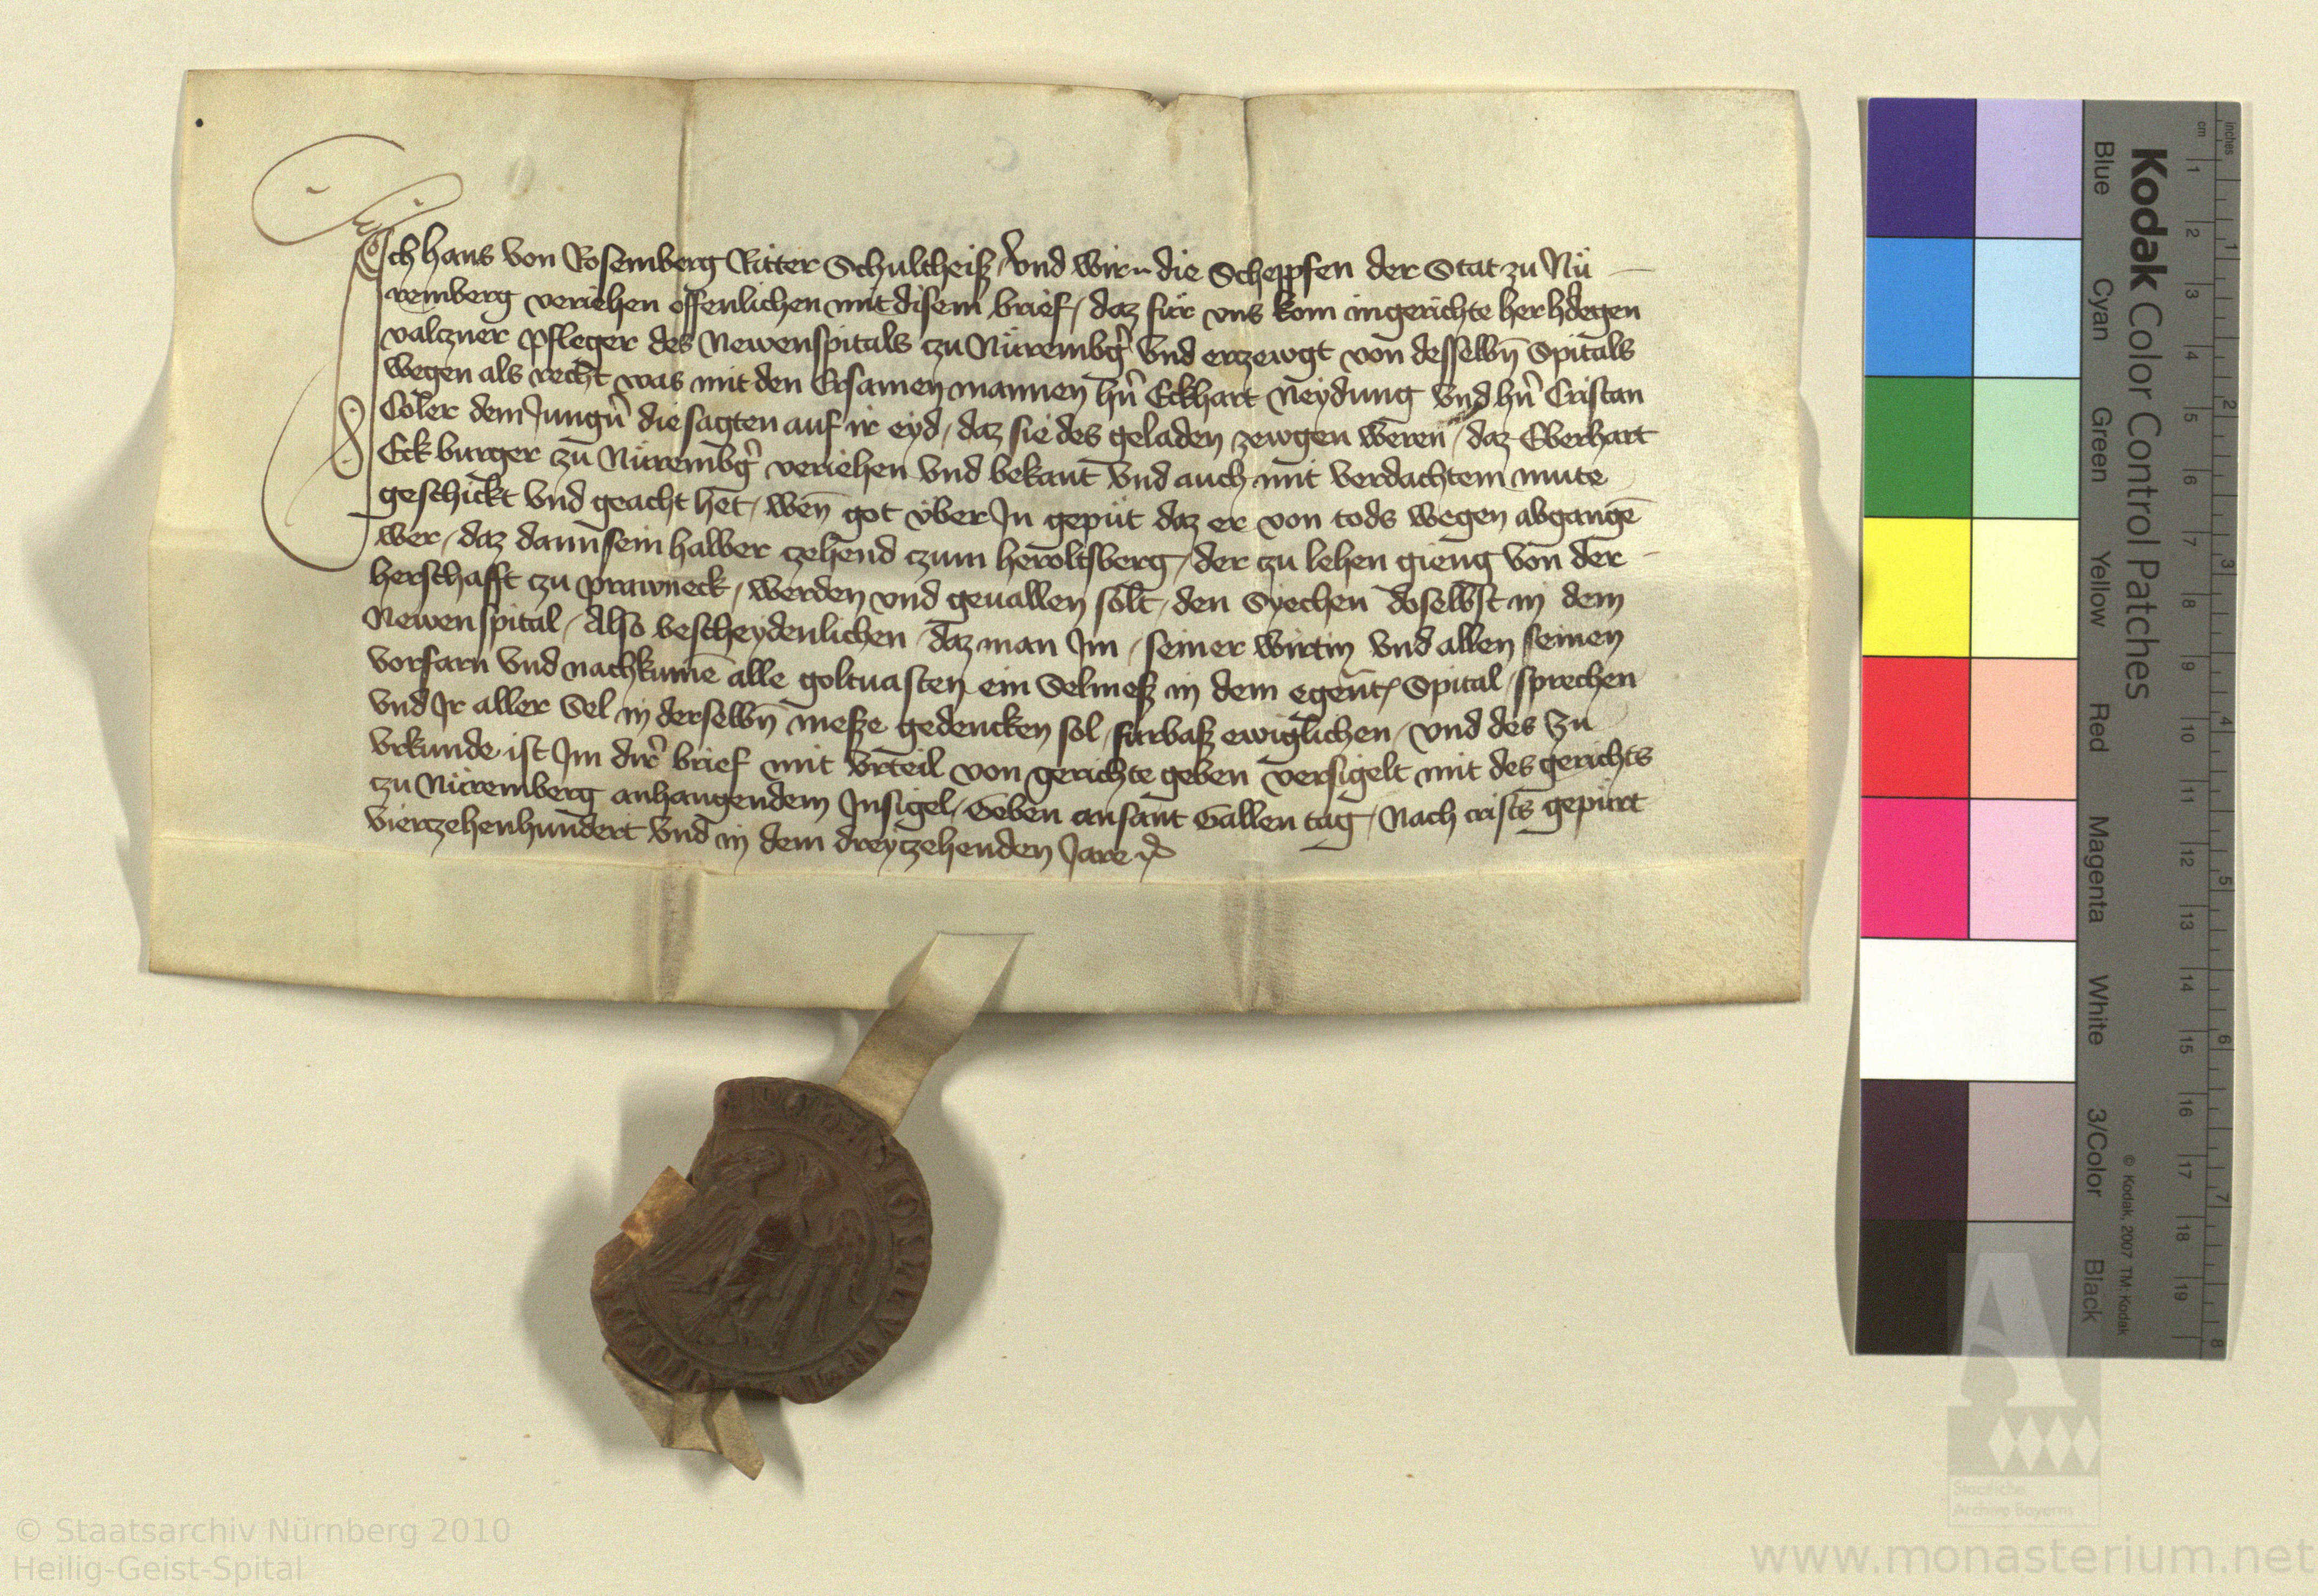 Ich hans von Rosemberg Ritter Schultheiß / Vnd wir die Schepfen der Stat zu Nü
remberg veriehen offenlichen mit disem brief / daz für vns kom in gerichte her hdegen
valczner pfleger des Newenspitals zu Nürembg Vnd erzewgt von desselbn̄ Spitals
wegen als recht was mit den Ersamen mannen hn̄ Eckhart Neydung Vnd hn̄ Cristan
Coler dem Jungn̄ die sagten auf ir eyd / daz sie des geladen zewgen weren / daz Eberhart
Eck burger zu Nürembg veriehen Vnd bekant Vnd auch mit verdachtem mute
geschickt Vnd geacht het / wen̄ got vber In gepüt daz er von tods wegen abgangē
wer / daz dann sein halber czehend czum heroltsberg / der zu lehen gieng von der
herschafft czu prawneck / werden vnd geuallen solt / den Syechen doselbst in dem
Newen spital / Also bescheydenlichen / daz man Im / seiner wirtin Vnd allen seinen
vorfarn Vnd nachkumē alle goltuasten ein Selmeß in dem egent Spital / sprechen
Vnd Ir aller Sel in derselbn̄ meße gedencken sol / fürbaß ewiglichen / Vnd des Zu
Vrkunde ist Im dir̄ brief mit Vrteil von gerichte geben versigelt mit des gerichts
zu Nüremberg anhangendem Insigel / Geben an sant Gallen tag / Nach crists gepürt
Vierczehenhundert Vnd in dem dreyczehenden Jare
Kodak Color Control Patches
Blue Cyan Green Yellow Red Magenta White 3/Color Black
© Kodak, 2007 TM: Kodak
cm 1 2 3 4 5 6 7 8 9 10 11 12 13 14 15 16 17 18 19
inches 1 2 3 4 5 6 7 8
Staatliche
Archive Bayerns
© Staatsarchiv Nürnberg 2010
Heilig-Geist-Spital
www.monasterium.net